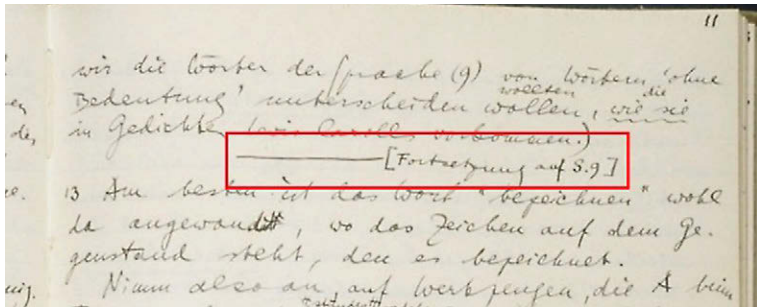 11
wir die Wörter der Sprache (9) von Wörtern 'ohne
wollten die
Bedeutung' unterscheiden wollen, wie sie
in Gedichten Lewis Carolls vorkommen.)
[Fortsetzung auf S.9]
13 Am besten ist das Wort "bezeichnen" wohl
da angewandt, wo das Zeichen auf dem Ge-
genstand steht, den es bezeichnet.
Nimm also an, auf Werkzeugen, die A beim